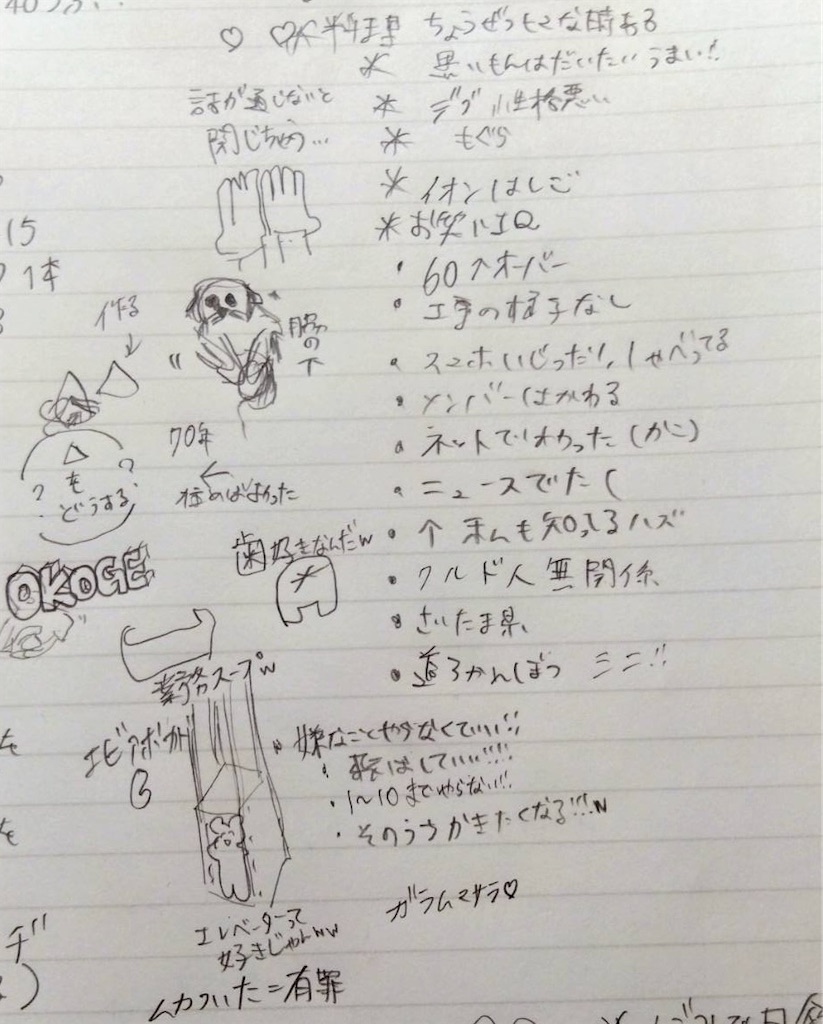 料理 ちょうぜつもてな時ある
黒いもんはだいたいうまい!
デブ 性格悪い
もぐら
話が通じないと
閉じちゃう…
イオンはしご
お笑い IQ
15
1本
60↑オーバー
工事の様子なし
作る
脇の下
スマホいじったり、しゃべってる
メンバーはかわる
70年
ネットでわかった(かこ)
△を
どうする
?
?
ニュースでた(
↑ 私も知ってるハズ
歯好きなんだw
OKOGE
クルド人無関係
さいたま県
道ろかんぼつ ミニ!!
業務スープw
エビアボカド
嫌なことやらなくていい!!
転はしていい!!!
1〜10までやらない!!
そのうちかきたくなる!!!w
ガラムマサラ♡
エレベーターって
好きじゃんww
ムカついた=有罪